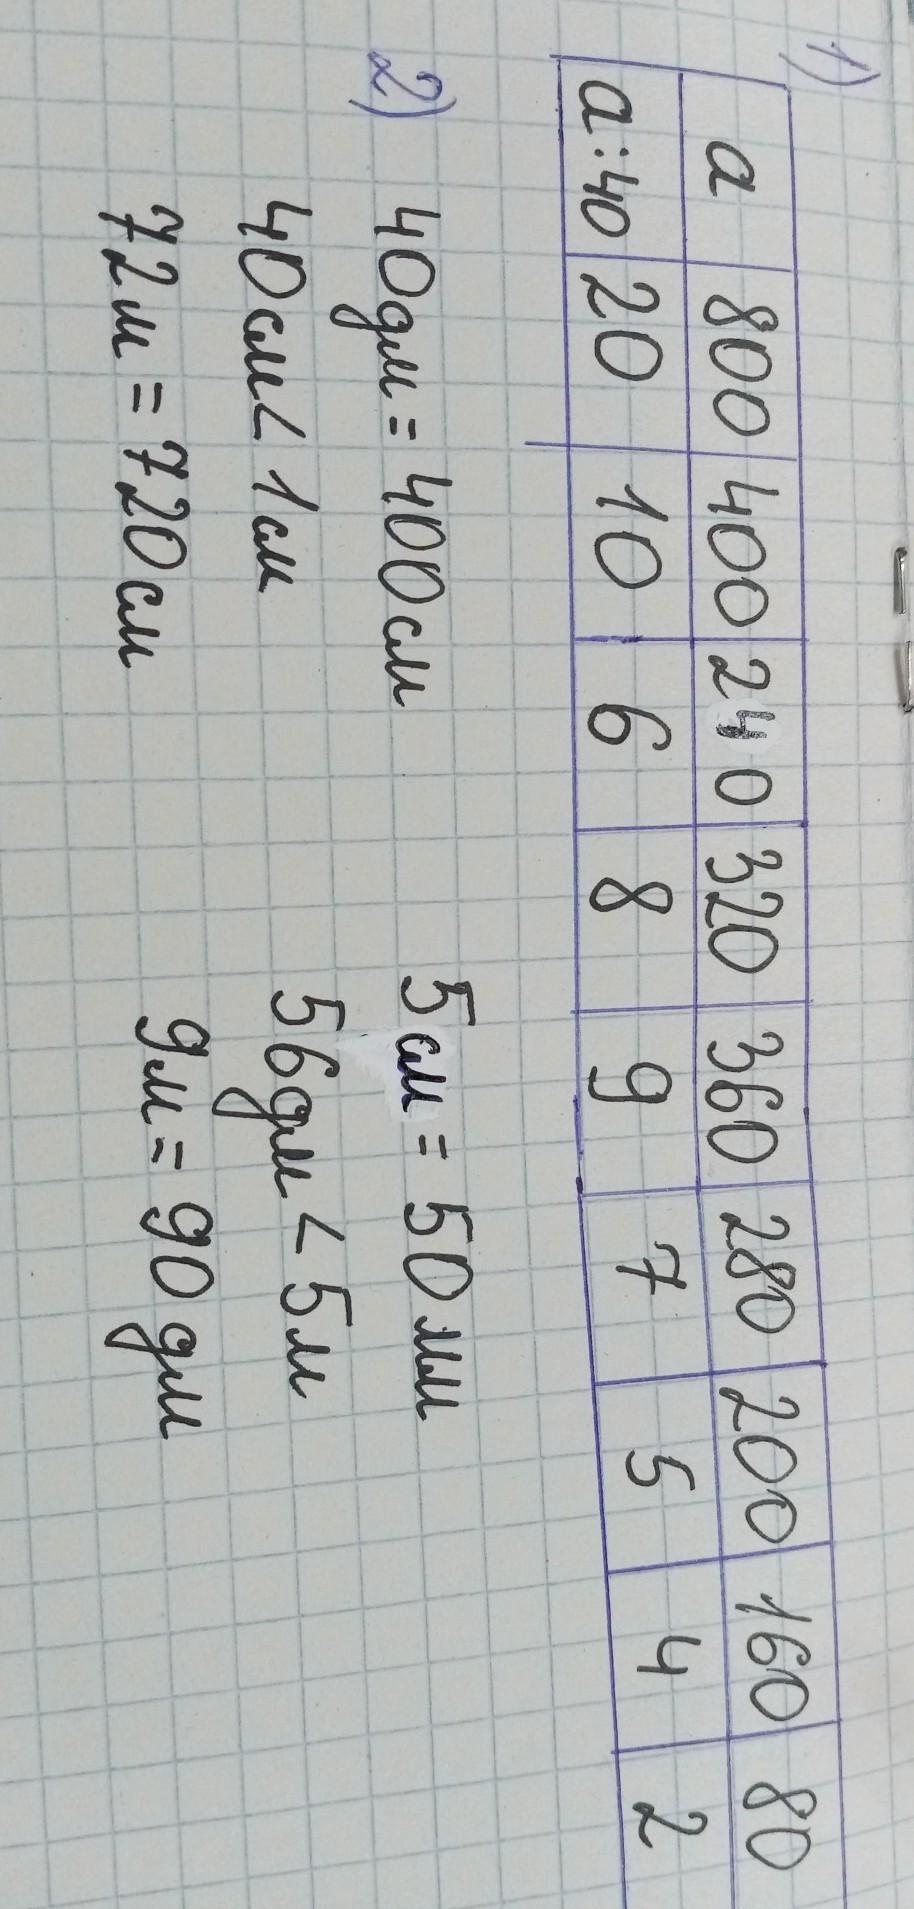 1)
а 800 400 240 320 360 280 200 160 80
а:40 20 10 6 8 9 7 5 4 2
2) 40дм = 400см 5см = 50мм
40см < 1см 56дм < 5м
72м = 720см 9м = 90дм